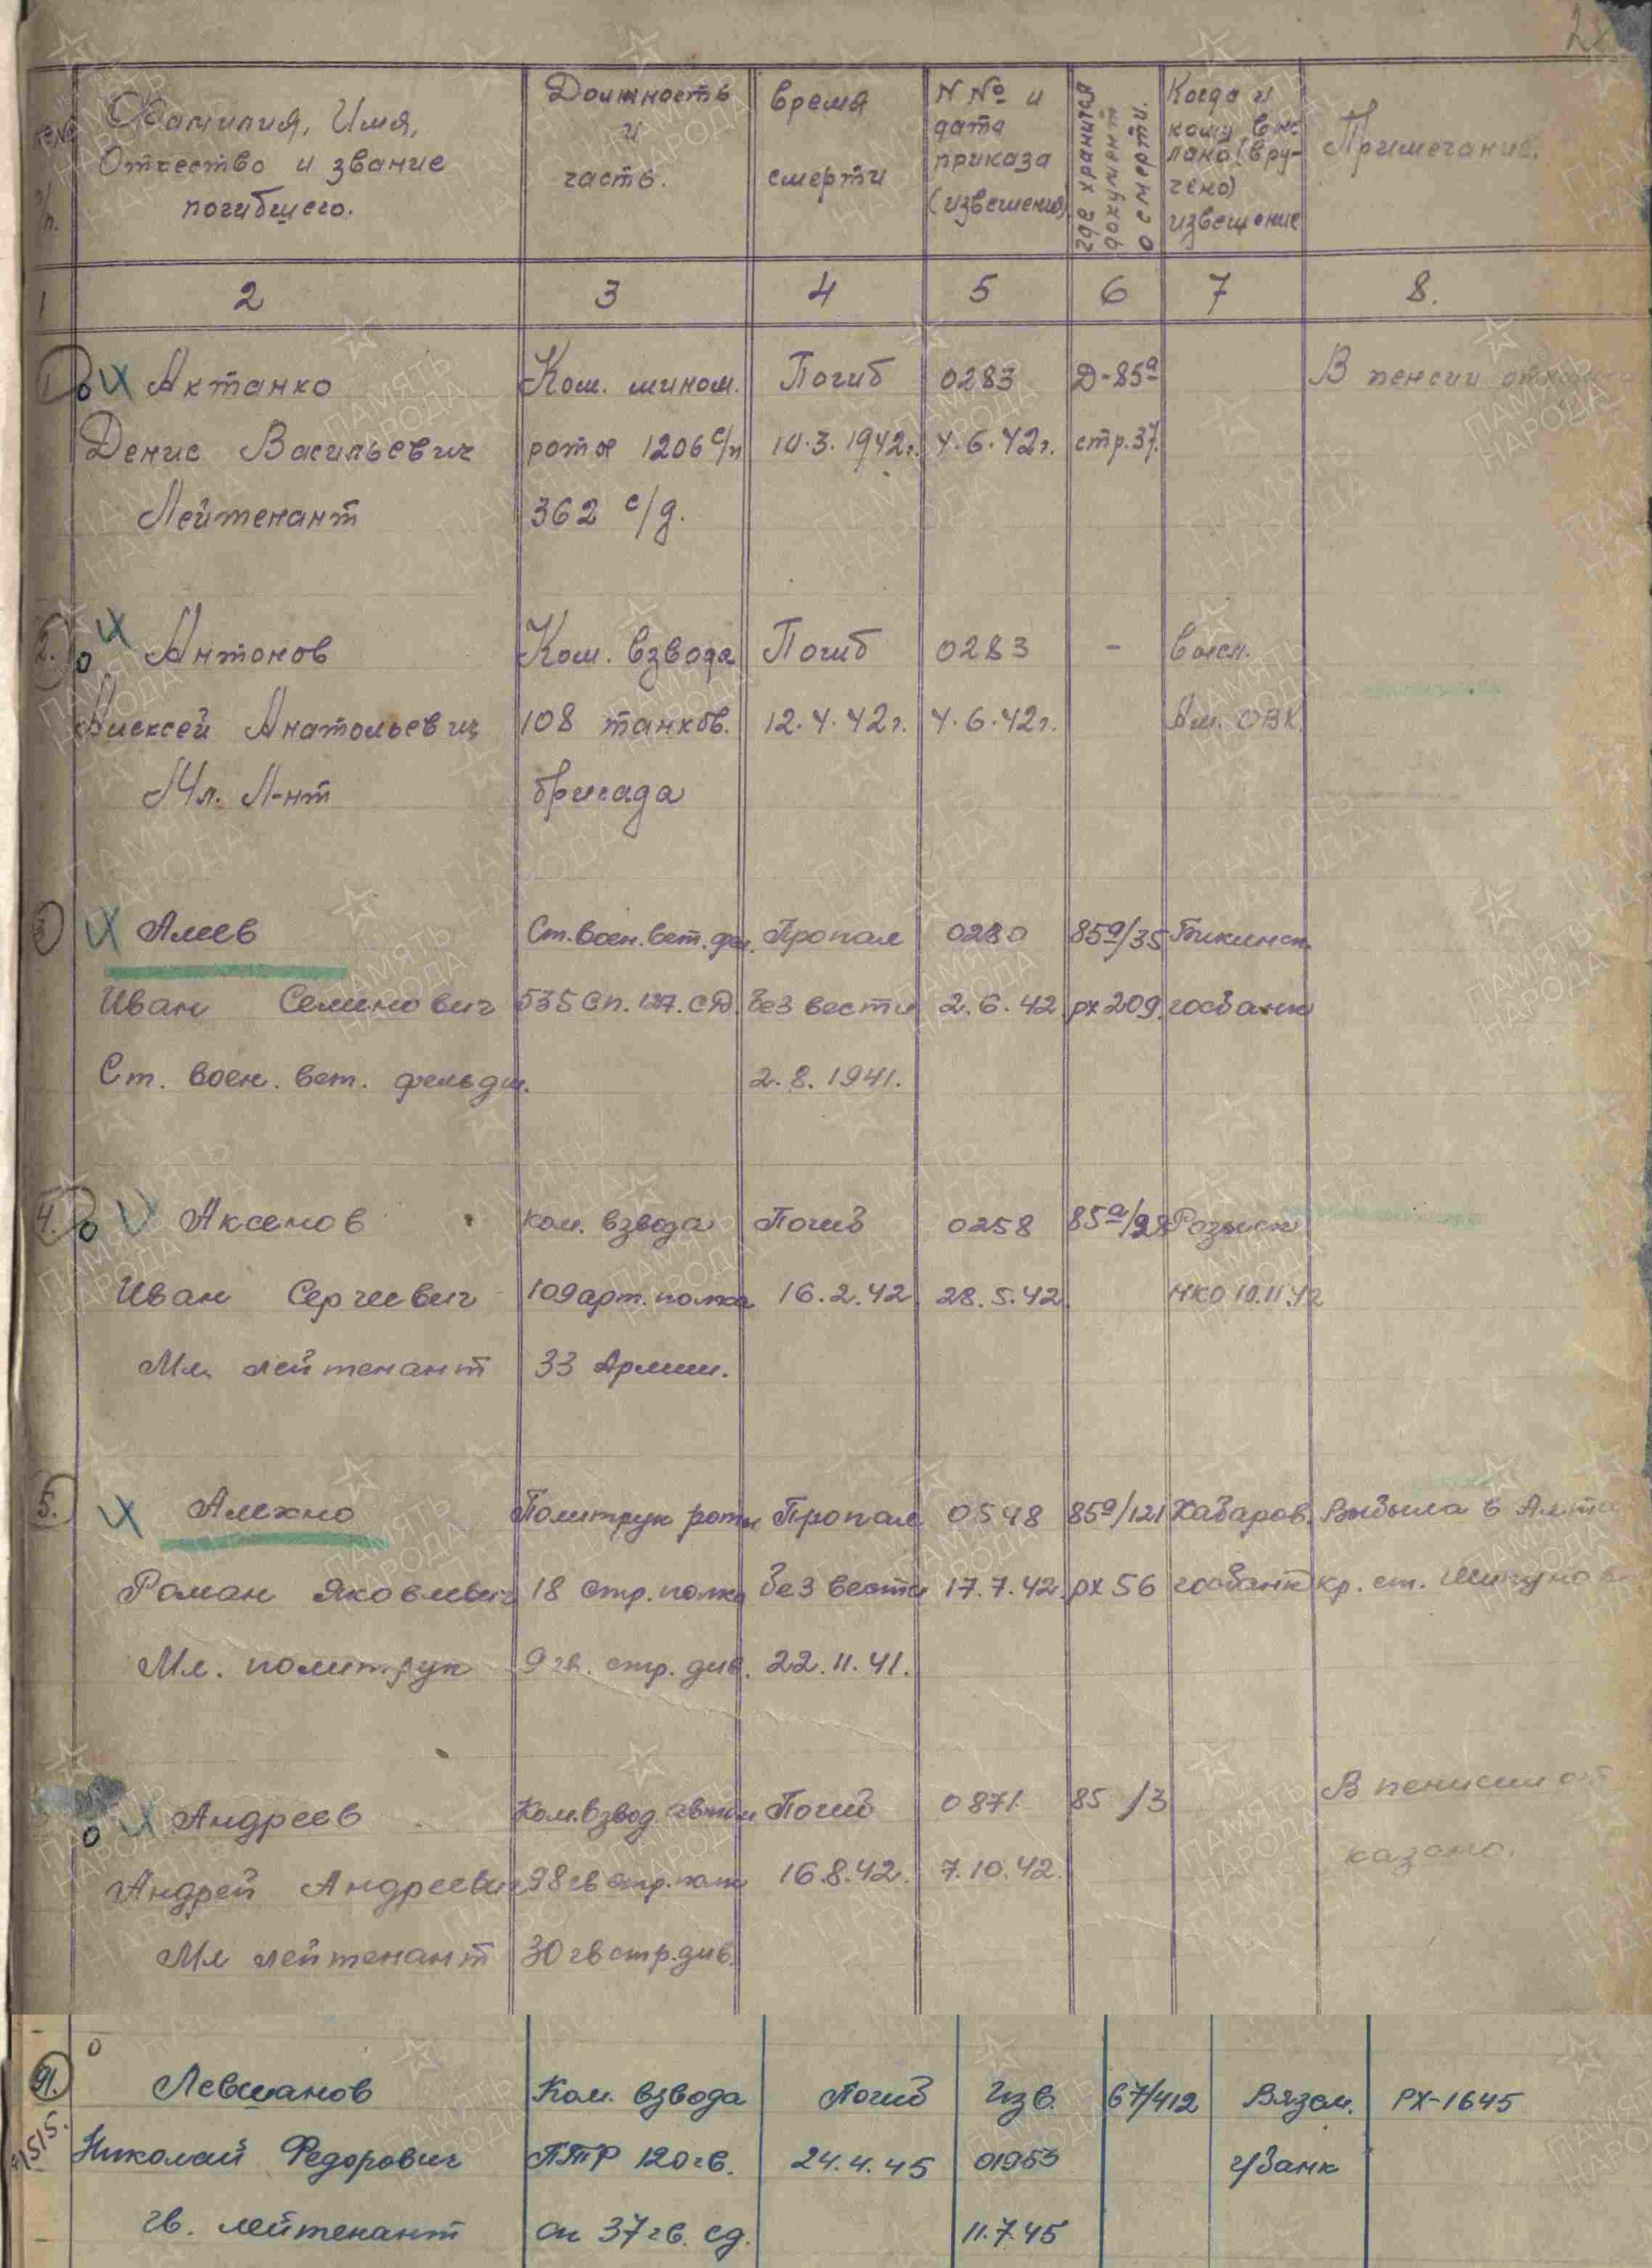 Фамилия, Имя, Должность время N № и Когда и
Отчество и звание и смерти дата кому выс Примечание.
погибшего. часть. приказа лано (вру-
(извещения) чено)
извещение
где хранится
документ
о смерти.
1 2 3 4 5 6 7 8.
1 Актанко Ком. мином. Погиб 0283 Д-85а В пенсии
Денис Васильевич роты 1206 с/п 10.3.1942г. 4.6.42г. стр.37.
Лейтенант 362 с/д.
2. Антонов Ком. взвода Погиб 0283 - высл.
Алексей Анатольевич 108 танков. 12.4.42г. 4.6.42г. Ам. ОВК.
Мл. Л-нт бригада
3 Алеев Ст. воен. вет. фель. Пропал 0280 85а/35 Бикинск.
Иван Семенович 535 СП. 127. СД. без вести 2.6.42 рх 209. госбанк
Ст. воен. вет. фельдш. 2.8.1941.
4. Аксенов Ком. взвода Погиб 0258 85а/28 Розыск
Иван Сергеевич 109 арт. полка 16.2.42. 28.5.42. НКО 10.11.42
Мл. лейтенант 33 Армии.
5. Алехно Политрук роты Пропал 0548 85а/121 Хабаров. Выбыла в Алта
Роман Яковлевич 18 стр. полка без вести 17.7.42. рх 56 госбанк кр. ст. Шипуно
Мл. политрук 9 гв. стр. див. 22.11.41.
Андреев Ком. взвод. Погиб 0871. 85 /3 В пенсии от
Андрей Андреевич 98 гв стр. полк 16.8.42. 7.10.42. казано.
Мл лейтенант 30 гв стр. див.
91. Левшанов Ком. взвода Погиб Изв. 67/412 Вязем. РХ-1645
Николай Федорович ПТР 120 гв. 24.4.45 01953 г/банк
гв. лейтенант сп 37 гв. сд. 11.7.45